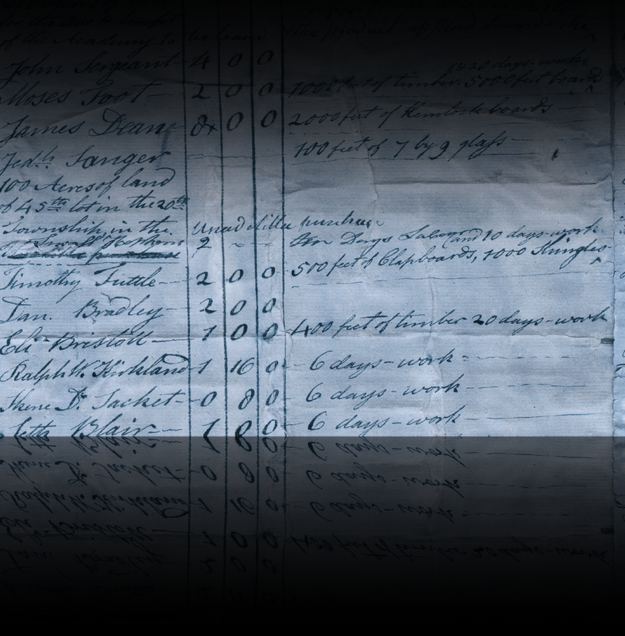 of the Academy
John Sergeant 4 0 0 20 days-work
Moses Foot 2 0 0 1000 feet of timber 5000 feet boards
James Dean 8 0 0 2000 feet of Hemlock boards
Jedh. Sanger 100 feet of 7 by 9 glass
100 Acres of land
of 45th lot in the 20th
Township in the Unadilla purchase
2 - - Ten Days Labour and 10 days-work
Timothy Tuttle 2 0 0 500 feet of Clapboards, 1000 Shingles
Dan. Bradley 2 0 0
Eli Brestoll 1 0 0 400 feet of timber 20 days-work
Ralph W. Kirkland 1 16 0 6 days-work
Skene D. Sacket 0 8 0 6 days-work
Seth Blair 1 8 0 6 days-work